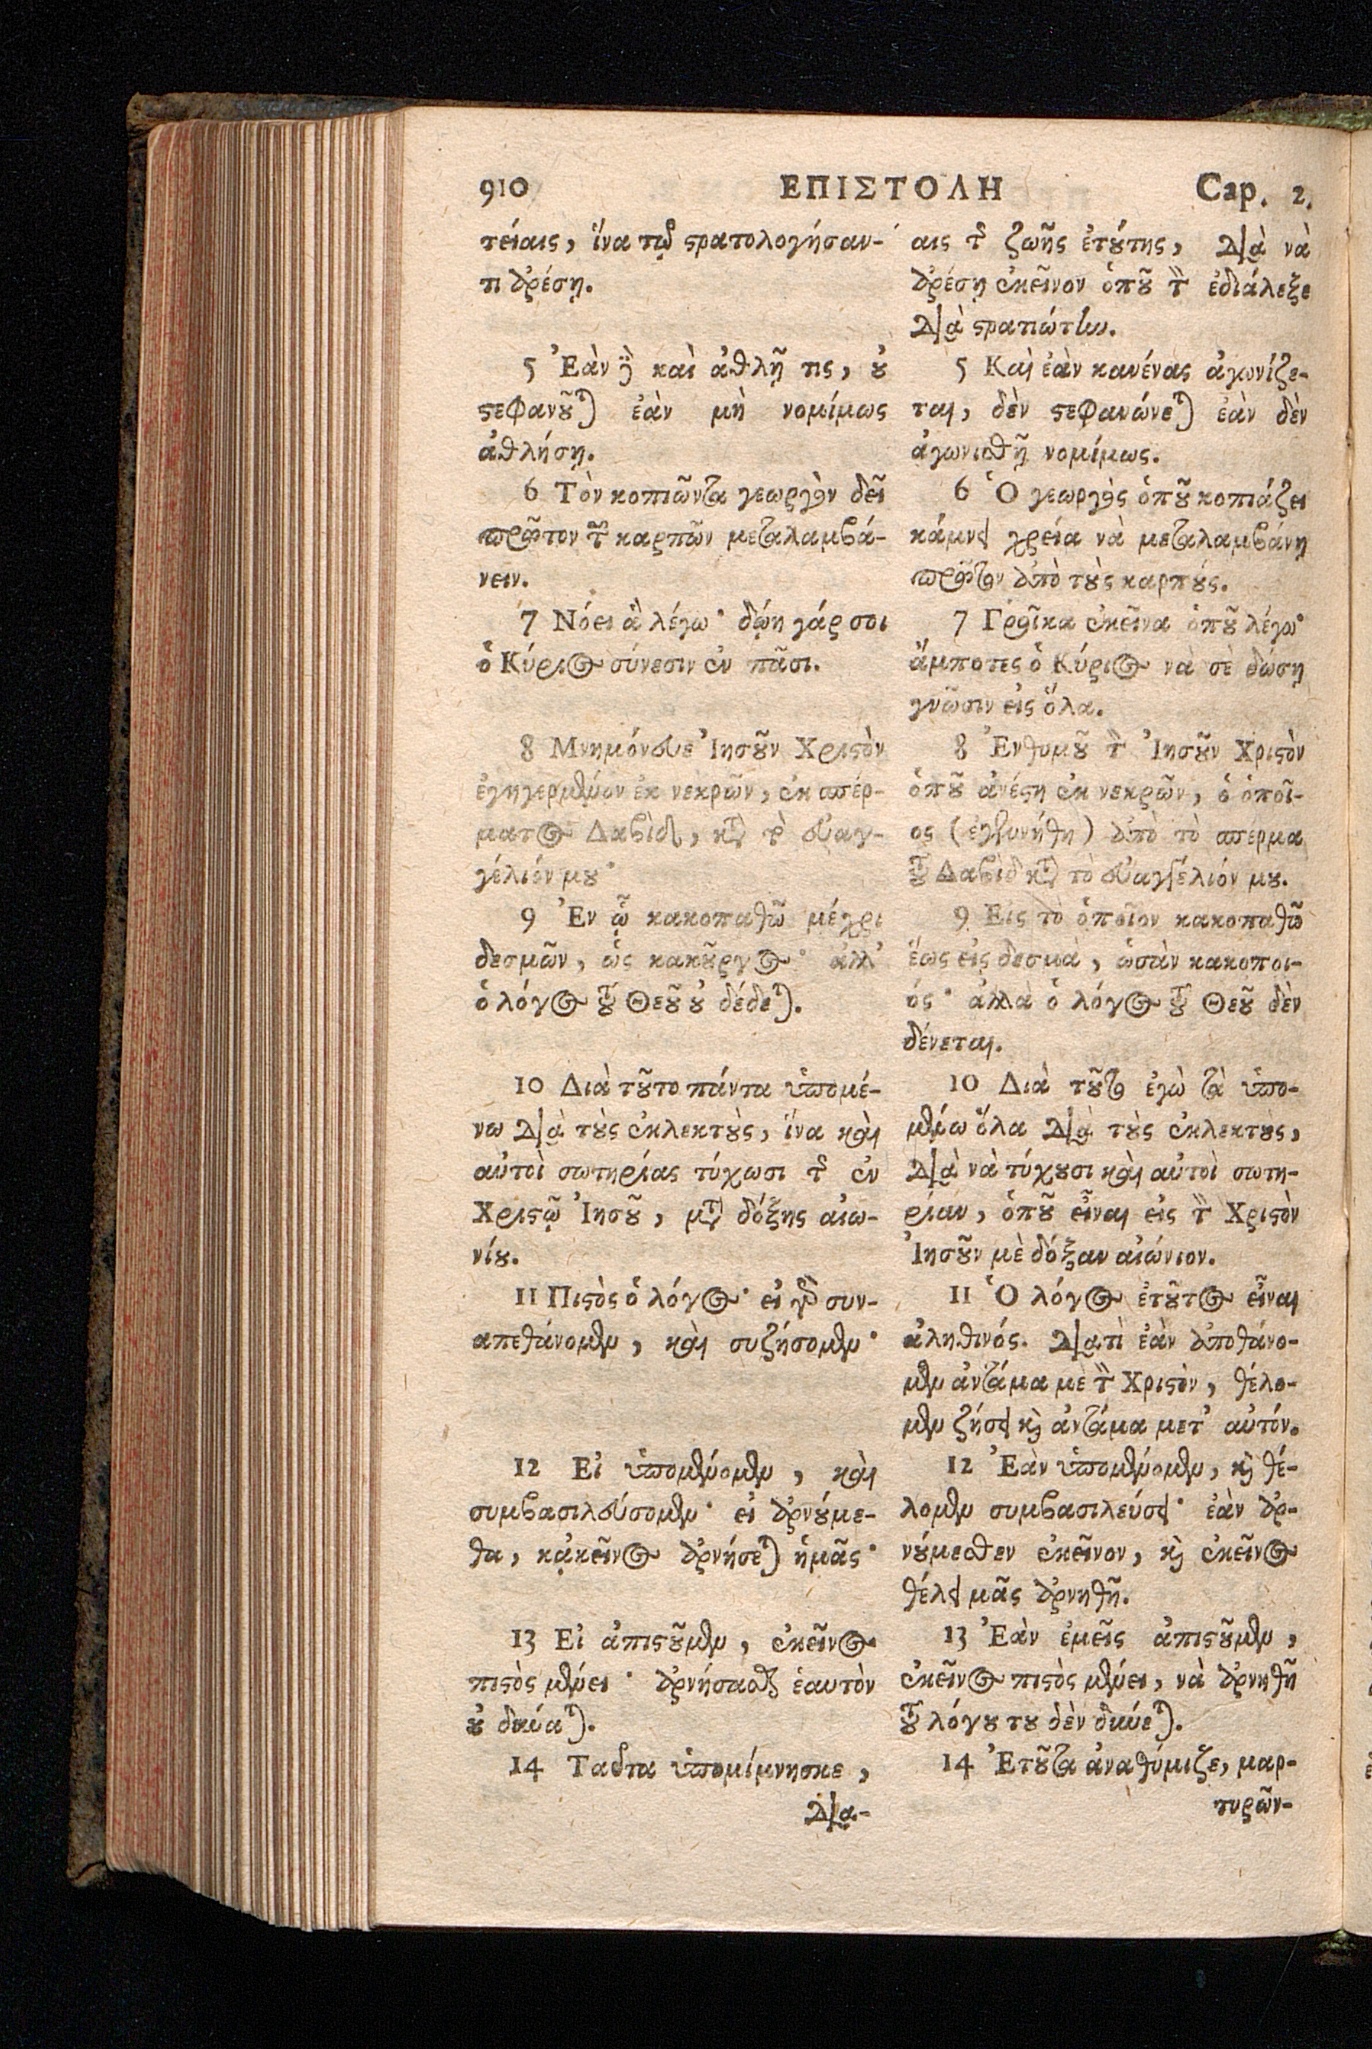 910 ΕΠΙΣΤΟΛΗ Cap. 2.
τείαις, ἵνα τῷ στρατολογήσαν-
τι ἀρέσῃ.
5 Ἐὰν δὲ καὶ ἀθλῇ τις, οὐ
στεφανοῦται ἐὰν μὴ νομίμως
ἀθλήσῃ.
6 Τὸν κοπιῶντα γεωργὸν δεῖ
πρῶτον τῶν καρπῶν μεταλαμβά-
νειν.
7 Νόει ἃ λέγω· δῴη γάρ σοι
ὁ Κύριος σύνεσιν ἐν πᾶσι.
8 Μνημόνευε Ἰησοῦν Χριστὸν
ἐγηγερμένον ἐκ νεκρῶν, ἐκ σπέρ-
ματος Δαβὶδ, κατὰ τὸ εὐαγ-
γέλιόν μου·
9 Ἐν ᾧ κακοπαθῶ μέχρι
δεσμῶν, ὡς κακοῦργος· ἀλλ'
ὁ λόγος τοῦ Θεοῦ οὐ δέδεται.
10 Διὰ τοῦτο πάντα ὑπομέ-
νω διὰ τοὺς ἐκλεκτοὺς, ἵνα καὶ
αὐτοὶ σωτηρίας τύχωσι τῆς ἐν
Χριστῷ Ἰησοῦ, μετὰ δόξης αἰω-
νίου.
11 Πιστὸς ὁ λόγος· εἰ γὰρ συν-
απεθάνομεν, καὶ συζήσομεν·
12 Εἰ ὑπομένομεν, καὶ
συμβασιλεύσομεν· εἰ ἀρνούμε-
θα, κᾀκεῖνος ἀρνήσεται ἡμᾶς·
13 Εἰ ἀπιστοῦμεν, ἐκεῖνος
πιστὸς μένει· ἀρνήσασθαι ἑαυτὸν
οὐ δύναται.
14 Ταῦτα ὑπομίμνησκε,
δια-
αις τῆς ζωῆς ἐτούτης, διὰ νὰ
ἀρέσῃ ἐκεῖνον ὁποῦ τὸν ἐδιάλεξε
διὰ στρατιώτην.
5 Καὶ ἐὰν κανένας ἀγωνίζε-
ται, δὲν στεφανώνεται ἐὰν δὲν
ἀγωνισθῇ νομίμως.
6 Ὁ γεωργὸς ὁποῦ κοπιάζει
κάμνει χρεία νὰ μεταλαμβάνῃ
πρῶτον ἀπὸ τοὺς καρπούς.
7 Γροῖκα ἐκεῖνα ὁποῦ λέγω·
ἄμποτες ὁ Κύριος νὰ σὲ δώσῃ
γνῶσιν εἰς ὅλα.
8 Ἐνθυμοῦ τὸν Ἰησοῦν Χριστὸν
ὁποῦ ἀνέστη ἐκ νεκρῶν, ὁ ὁποῖ-
ος (ἐγεννήθη) ἀπὸ τὸ σπερμα
τοῦ Δαβὶδ κατὰ τὸ εὐαγγέλιόν μου.
9 Εἰς τὸ ὁποῖον κακοπαθῶ
ἕως εἰς δεσμὰ, ὡσὰν κακοποι-
ός· ἀλλὰ ὁ λόγος τοῦ Θεοῦ δὲν
δένεται.
10 Διὰ τοῦτο ἐγὼ τὰ ὑπο-
μένω ὅλα διὰ τοὺς ἐκλεκτους,
διὰ νὰ τύχουσι καὶ αὐτοὶ σωτη-
ρίαν, ὁποῦ εἶναι εἰς τὸν Χριστὸν
Ἰησοῦν μὲ δόξαν αἰώνιον.
11 Ὁ λόγος ἐτοῦτος εἶναι
ἀληθινός. διατὶ ἐὰν ἀποθάνο-
μεν ἀντάμα μὲ τὸν Χριστὸν, θέλο-
μεν ζήσει καὶ ἀντάμα μετ' αὐτόν.
12 Ἐὰν ὑπομένομεν, καὶ θέ-
λομεν συμβασιλεύσει· ἐὰν ἀρ-
νούμεσθεν ἐκεῖνον, καὶ ἐκεῖνος
θέλει μᾶς ἀρνηθῆ.
13 Ἐὰν ἐμεῖς ἀπιστοῦμεν,
ἐκεῖνος πιστὸς μένει, νὰ ἀρνηθῇ
τοῦ λόγου του δὲν δύνεται.
14 Ἐτοῦτα ἀναθύμιζε, μαρ-
τυρῶν-